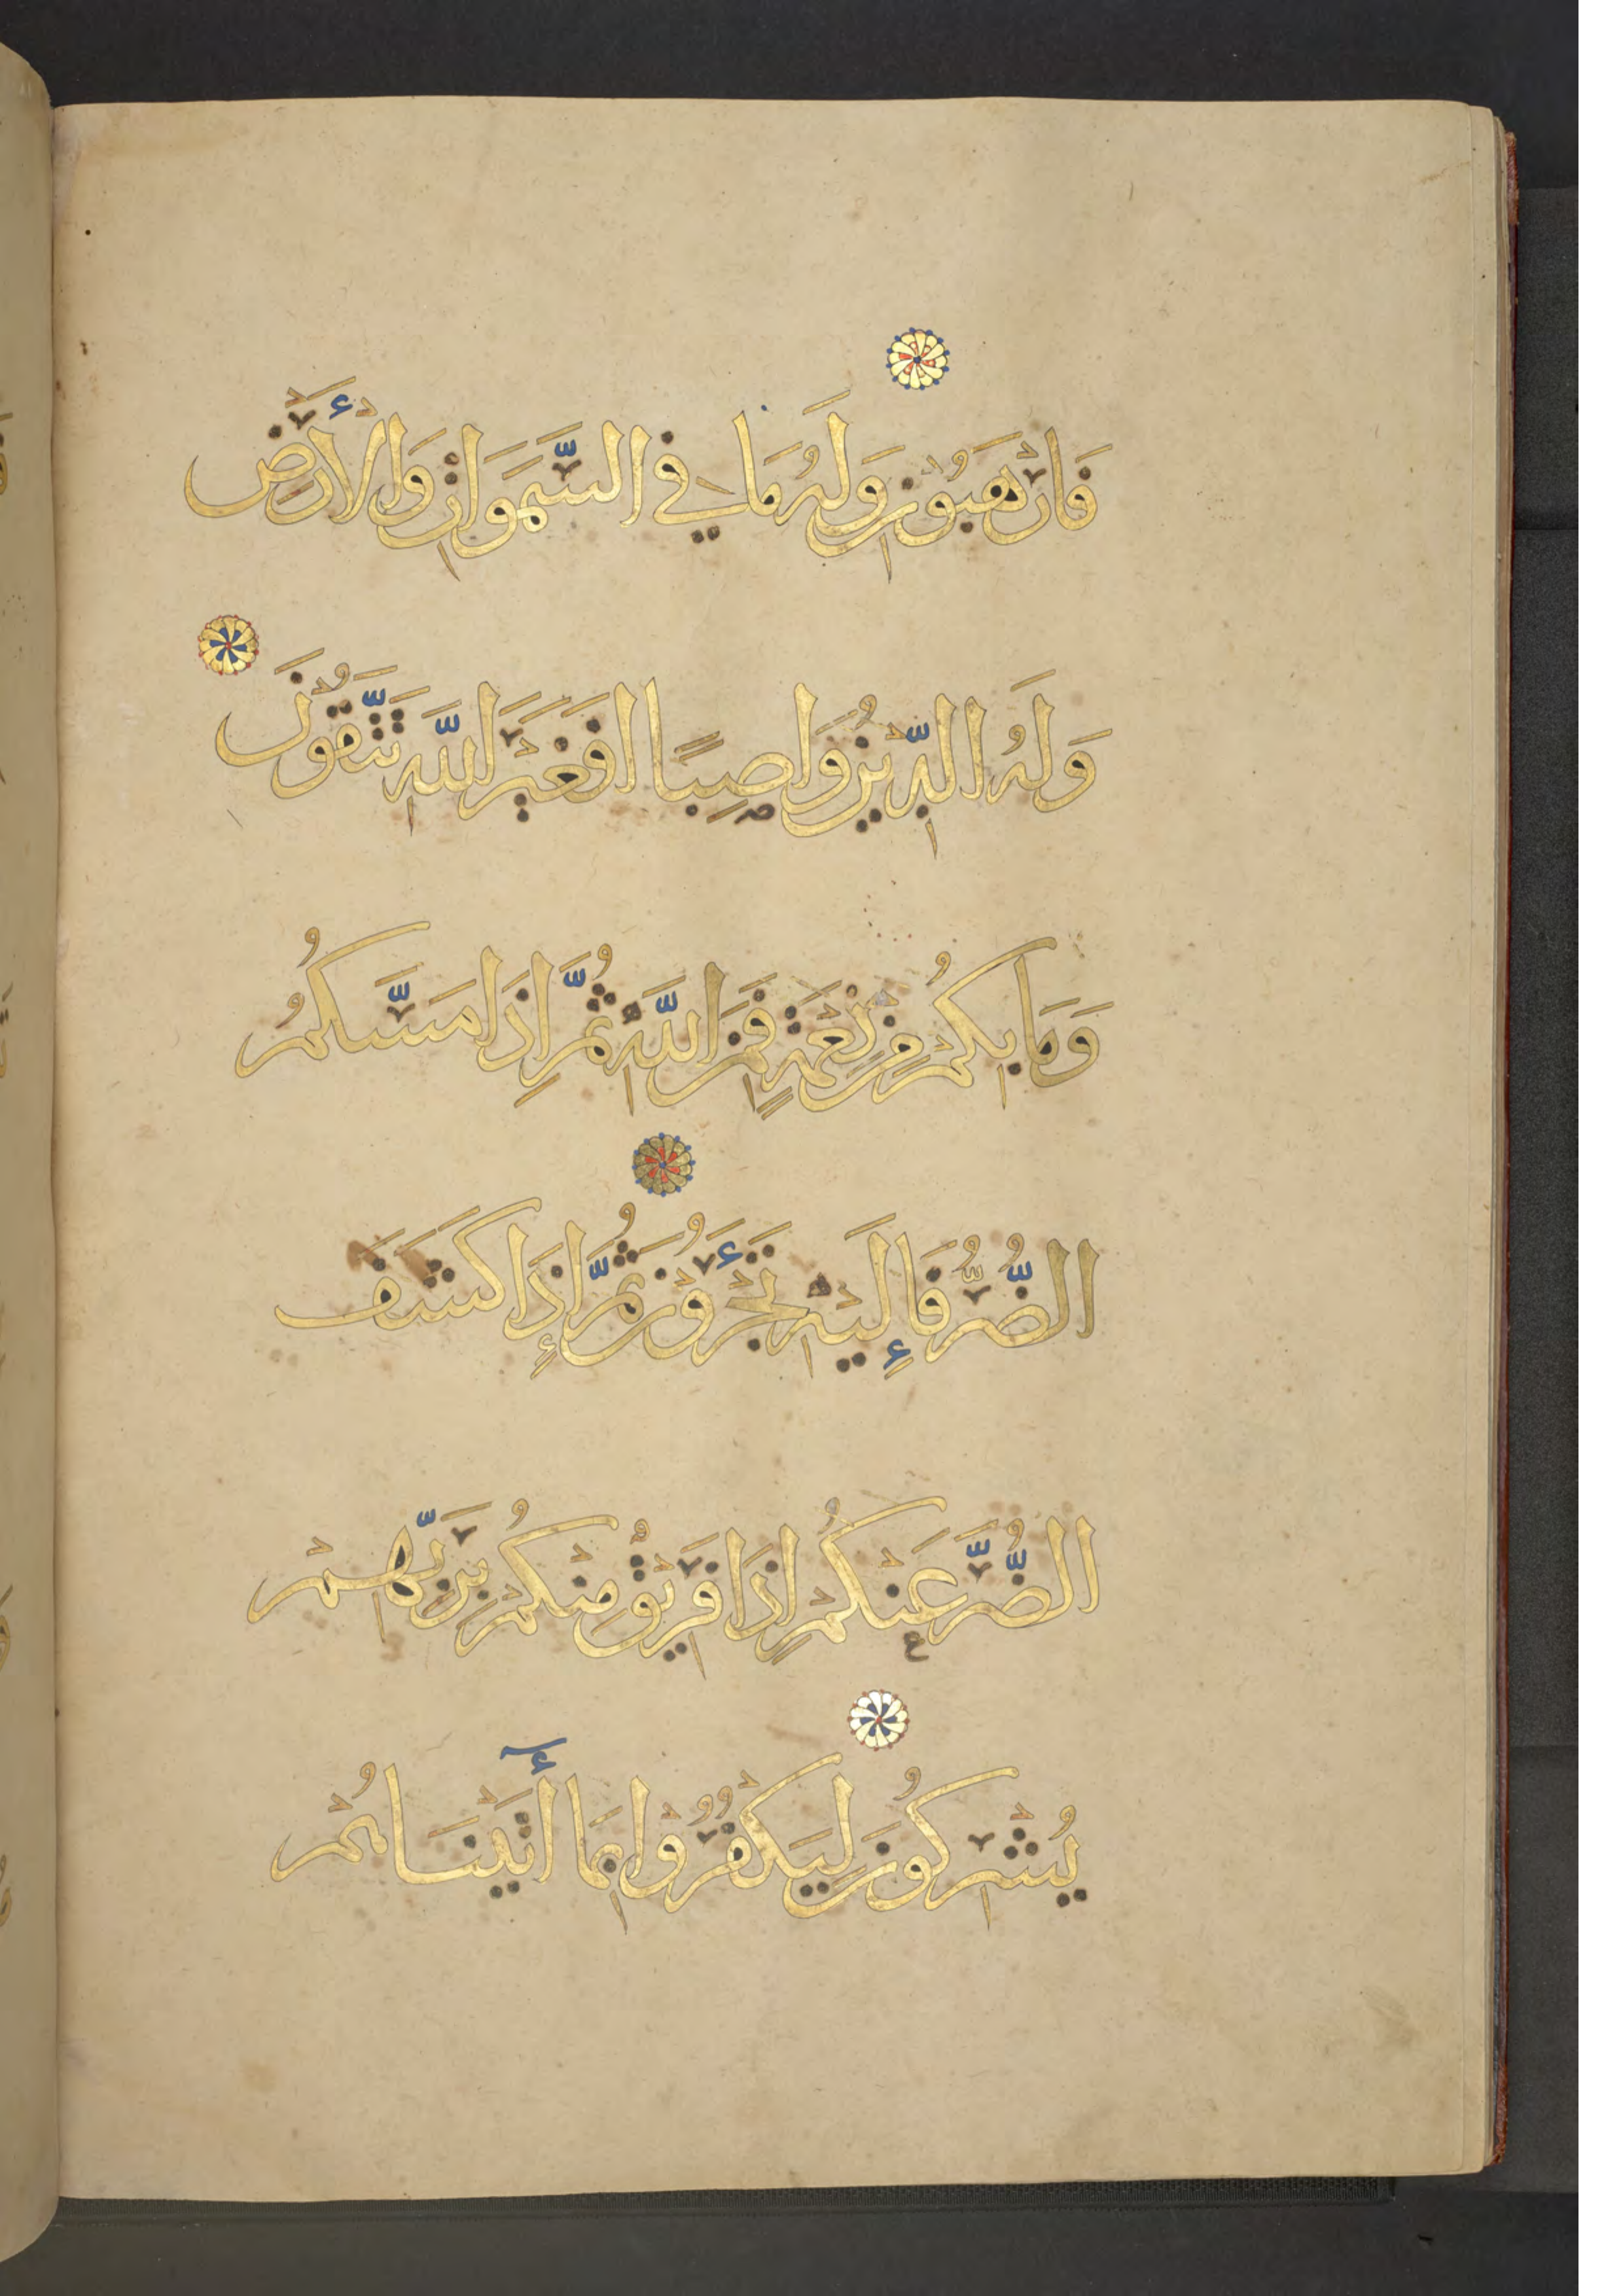 فَارْهَبُونِ وَلَهُ مَا فِي السَّمَوَاتِ وَالْأَرْضِ
وَلَهُ الدِّينُ وَاصِبًا اَفَغَيْرَ اللَّهِ تَتَّقُونَ
وَمَا بِكُمْ مِنْ نِعْمَةٍ فَمِنَ اللَّهِ ثُمَّ اِذَا مَسَّكُمُ
الضُّرُّ فَإِلَيْهِ تَجْـَٔرُونَ ثُمَّ إِذَا كَشَفَ
الضُّرَّ عَنْكُمْ اِذَا فَرِيقٌ مِنْكُمْ بِرَبِّهِمْ
يُشْرِكُونَ لِيَكْفُرُوا بِمَا أٓتَيْنَاهُمْ